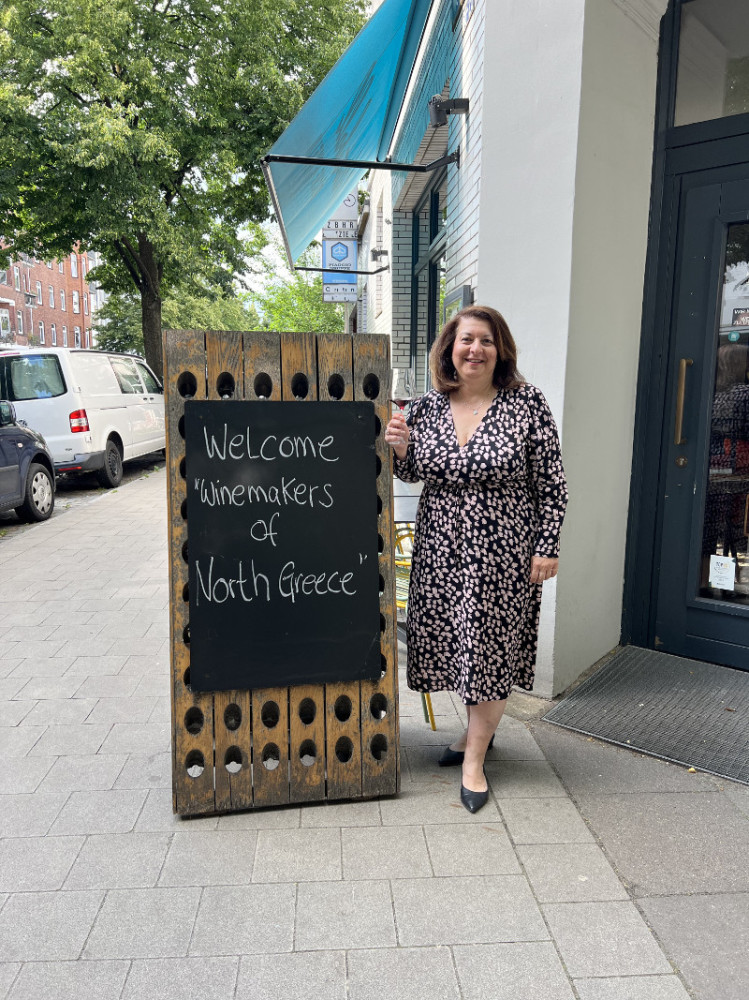 Welcome
"Winemakers
of
North Greece"